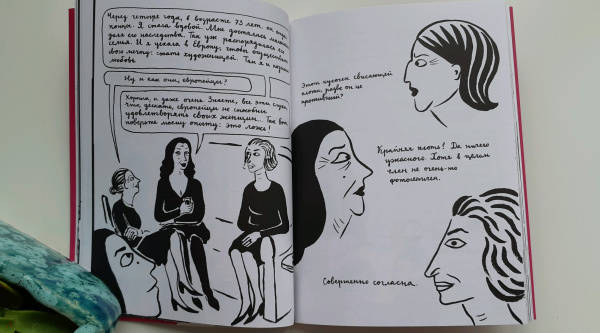 Через четыре года, в возрасте 73 лет, он отдал
концы. Я стала вдовой. Мне досталась малая
доля его наследства. Так уж распорядилась его
семья. И я уехала в Европу, чтобы осуществить
свою мечту: стать художницей. Там я и познала
любовь.
Ну и как они, европейцы?
Хороши, и даже очень. Знаете, все эти слухи,
что, дескать, европейцы не способны
удовлетворять своих женщин... Так вот,
поверьте моему опыту: это ложь!
Этот кусочек свисающей
плоти, разве он не
противный?
Крайняя плоть? Да ничего
ужасного. Хотя в целом
член не очень-то
фотогеничен.
Совершенно согласна.